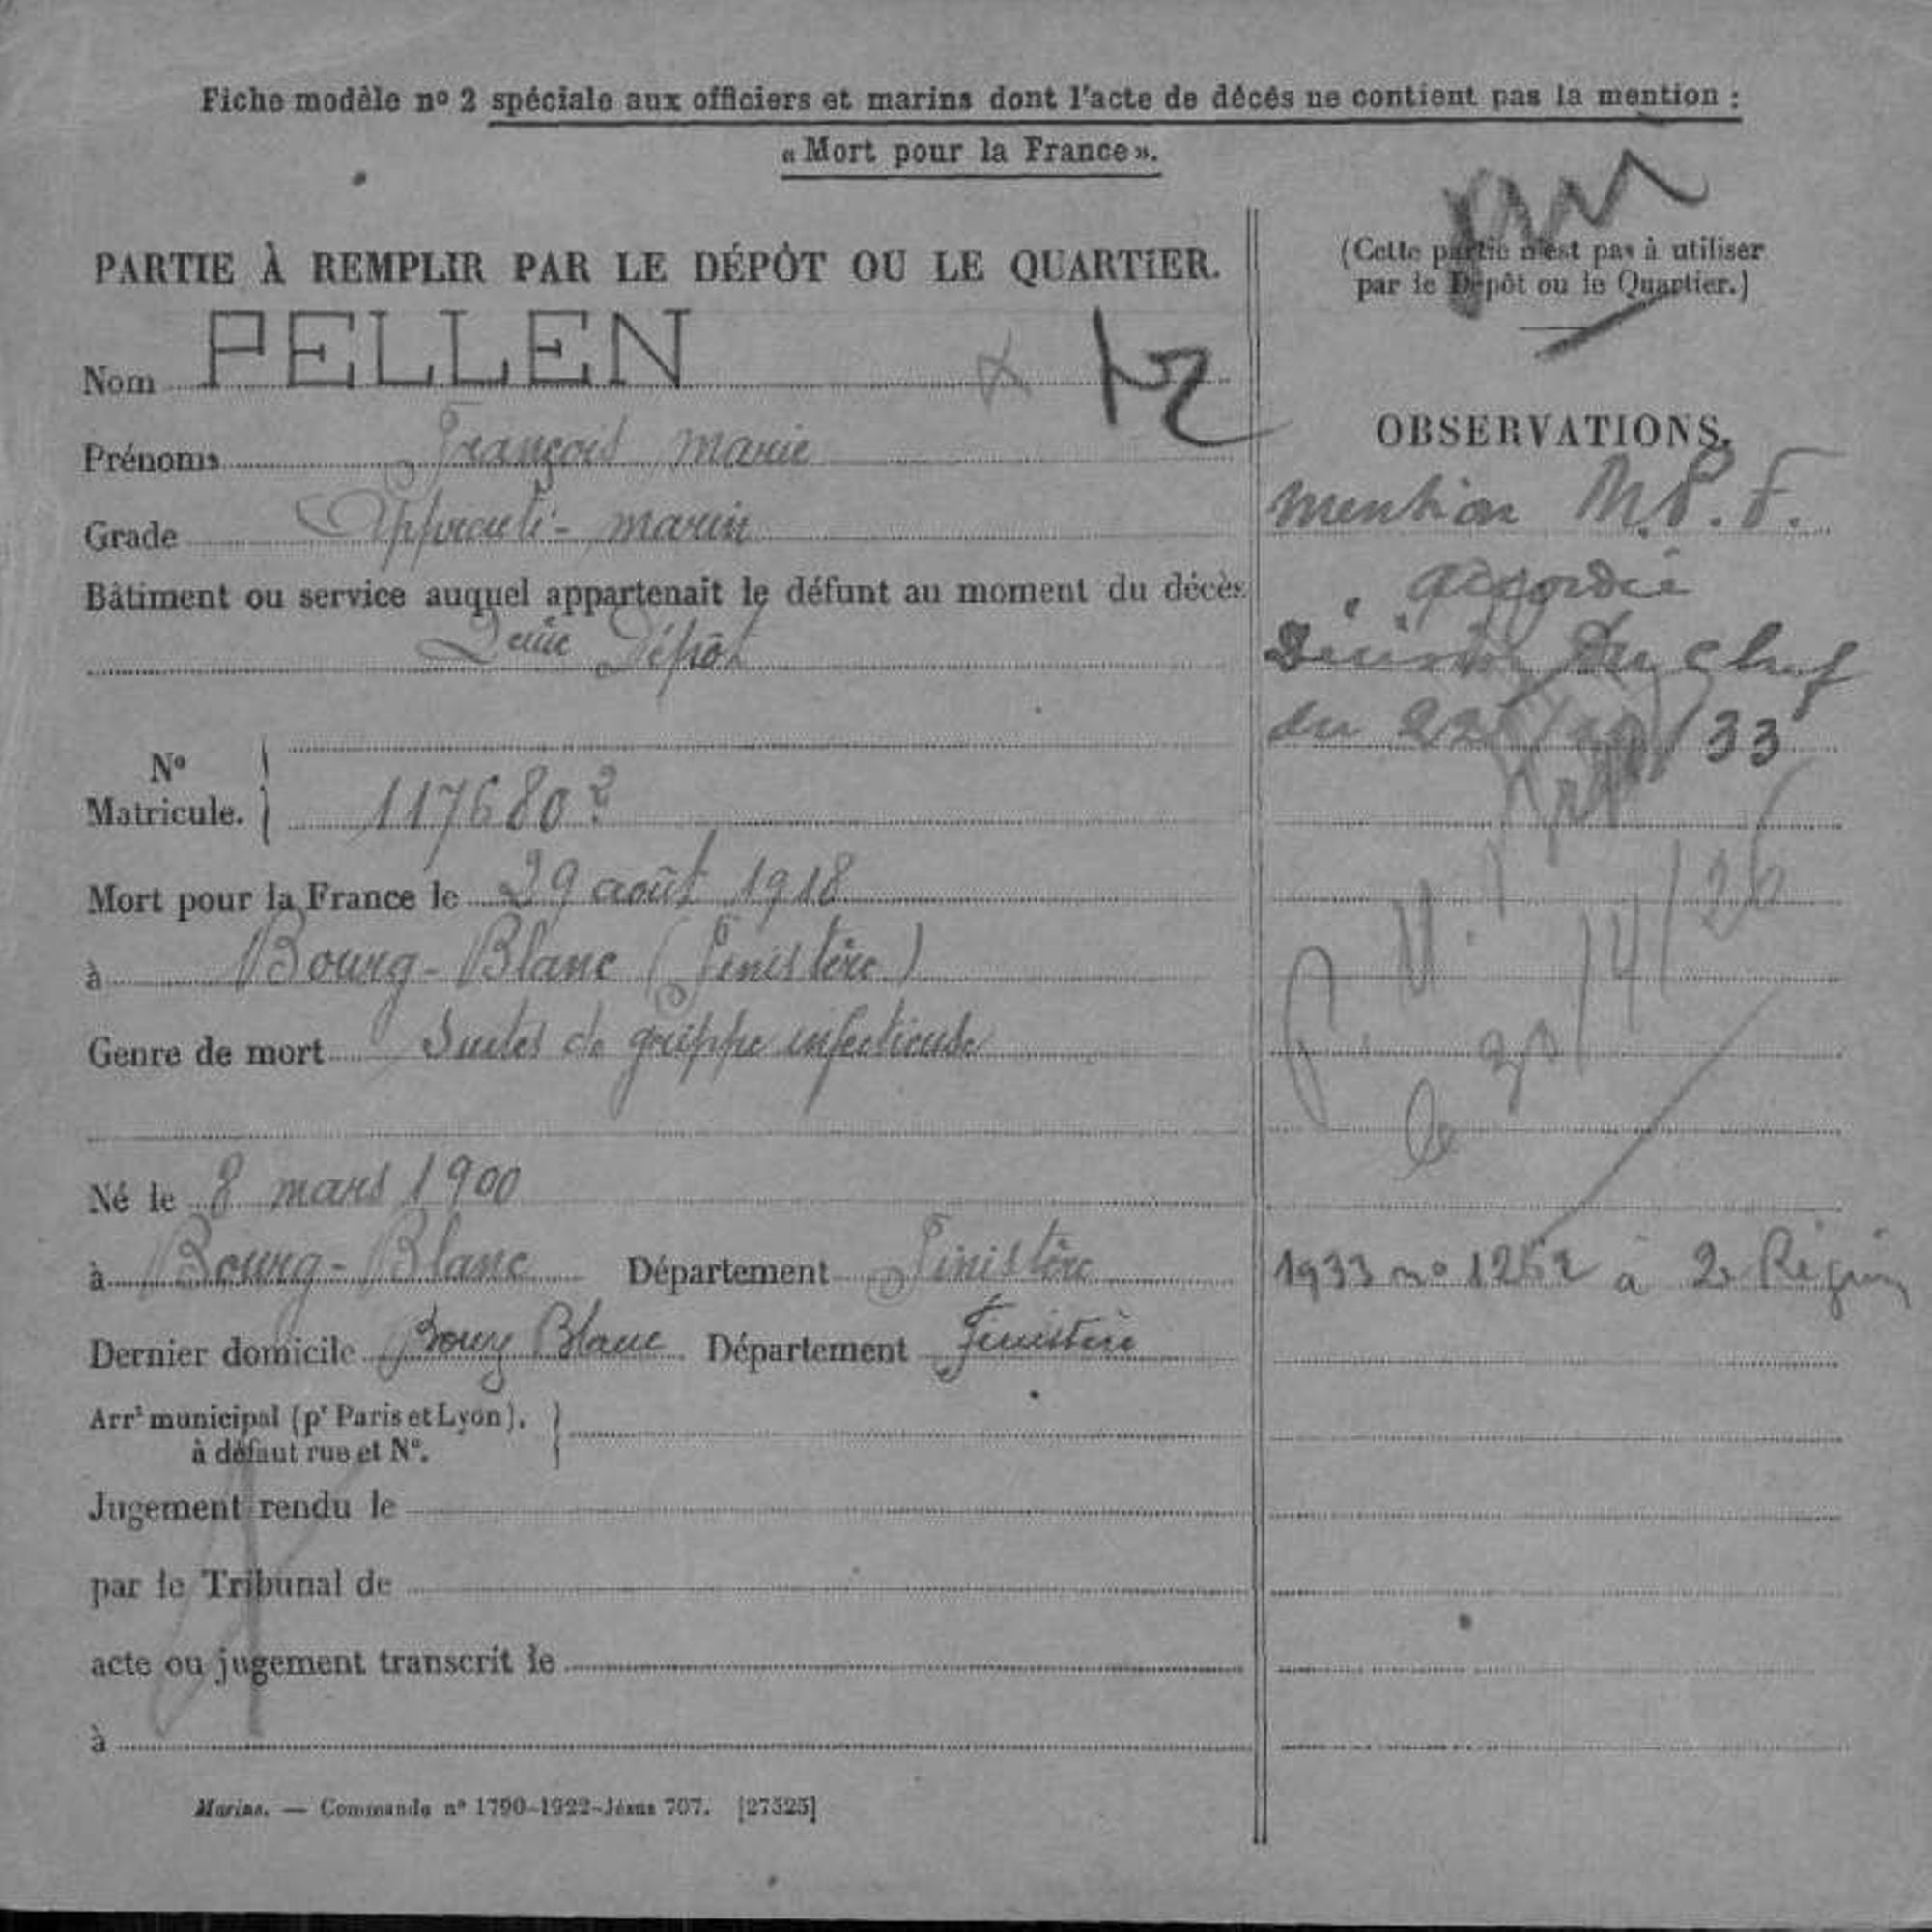 Fiche modèle nº 2 spéciale aux officiers et marins dont l'acte de décès ne contient pas la mention :
« Mort pour la France ».
PARTIE À REMPLIR PAR LE DÉPÔT OU LE QUARTIER.
Nom PELLEN
Prénoms François Marie
Grade Apprenti-marin
Bâtiment ou service auquel appartenait le défunt au moment du décès
2eme Dépôt
Nº Matricule. 117680 2
Mort pour la France le 29 août 1918
à Bourg-Blanc (Finistère)
Genre de mort Suites de grippe infectieuse
Né le 8 mars 1900
à Bourg-Blanc Département Finistère
Dernier domicile Bourg Blanc Département Finistère
Arrt municipal (pr Paris et Lyon),
à défaut rue et Nº.
Jugement rendu le
par le Tribunal de
acte ou jugement transcrit le
à
Marine. — Commande nº 1790-1922-Jésus 707. [27525]
(Cette partie n'est pas à utiliser
par le Dépôt ou le Quartier.)
OBSERVATIONS.
mention M.P.F.
accordée
Décision du chef
du /33
1933 nº 1262 à 2e Région